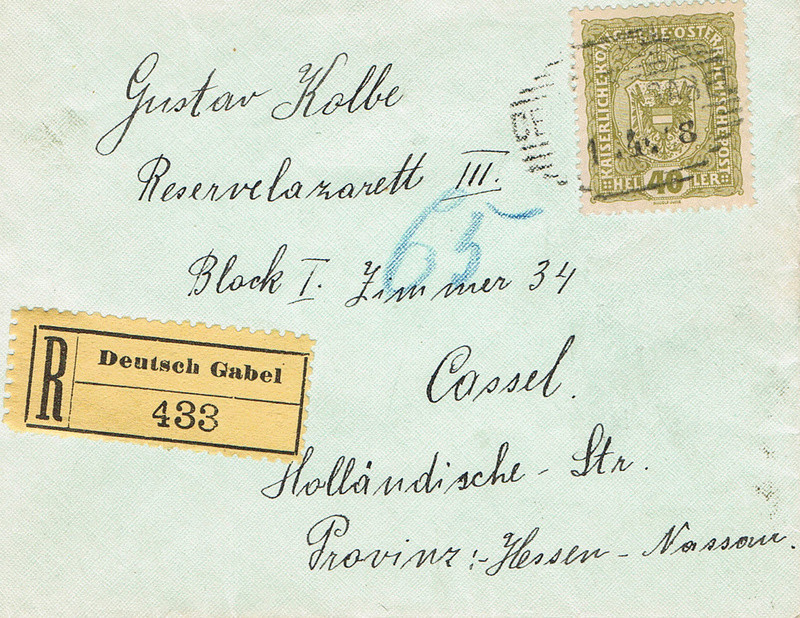 KAISERLICHE KÖNIGLICHE ÖSTERREICHISCHE POST
HELLER 40 HELLER
Gustav Kolbe
Reservelazarett III.
65
Block I. Zimmer 34
R Deutsch Gabel
433
Cassel.
Holländische - Str.
Provinz:- Hessen - Nassau.